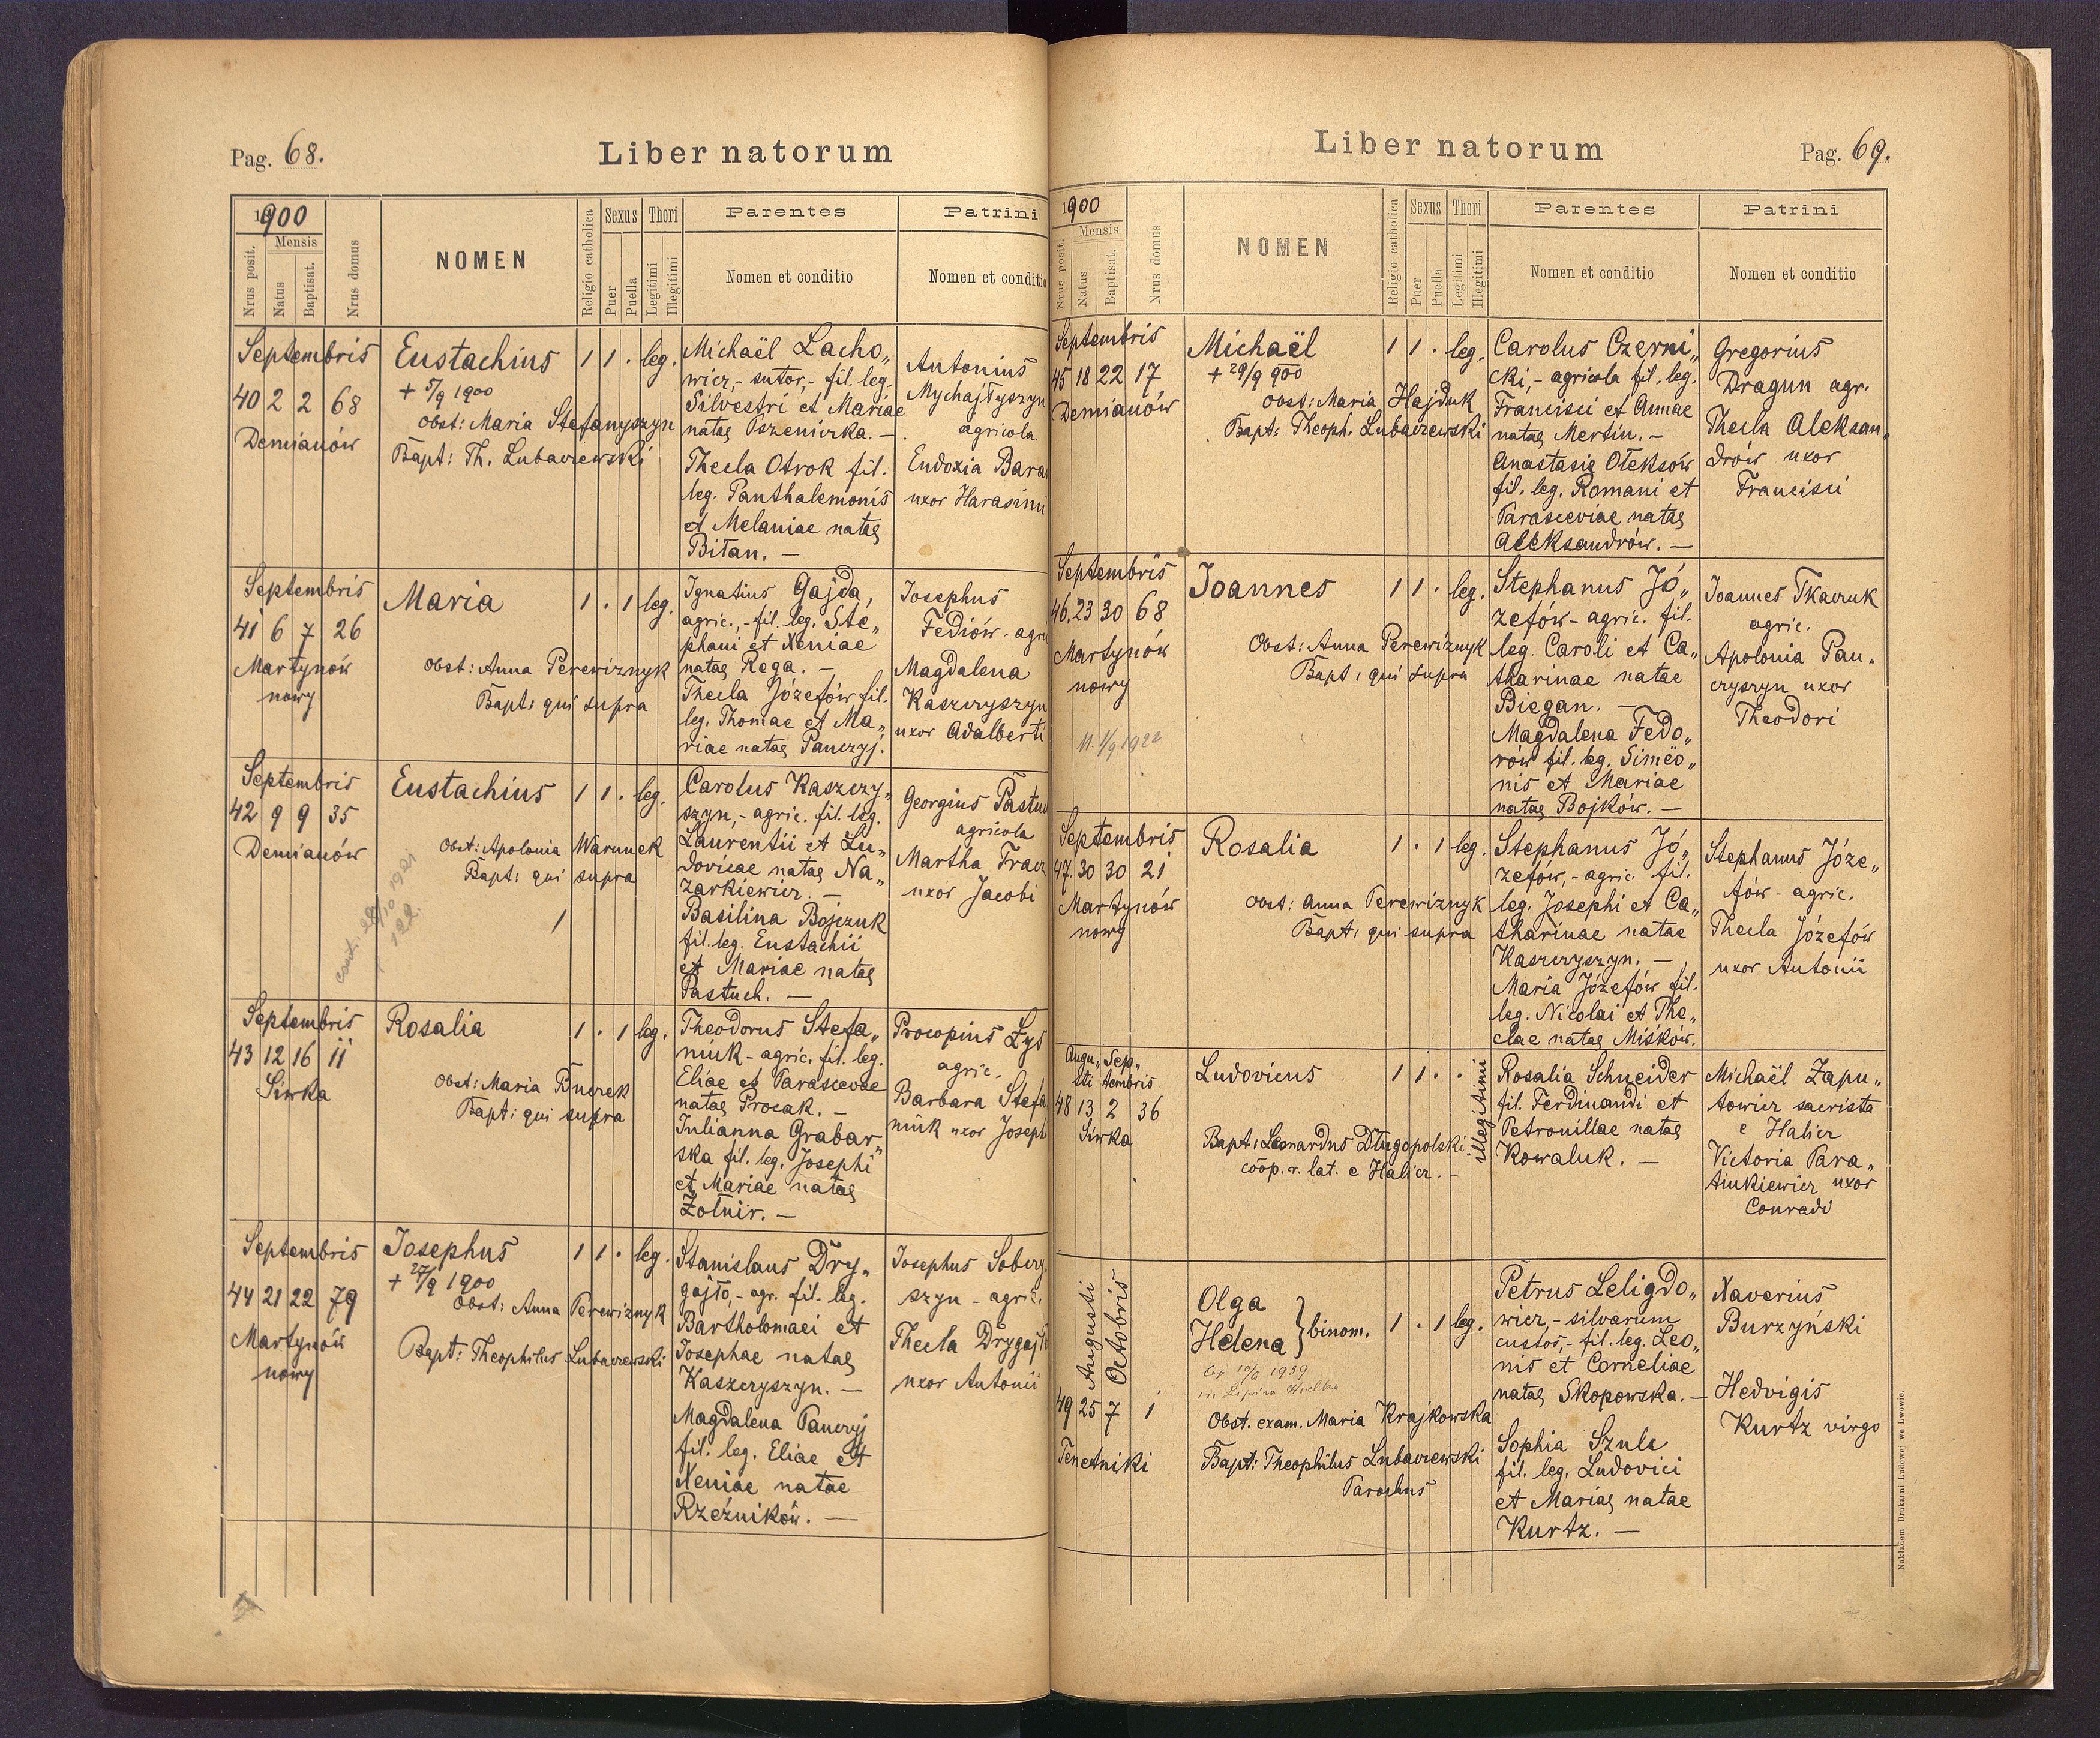 Pag. 68.
Liber natorum
1900
Nrus posit.
Mensis
Natus
Baptisat.
Nrus domus
NOMEN
Religio catholica
Sexus
Puer
Puella
Thori
Legitimi
Illegitimi
Parentes
Nomen et conditio
Patrini
Nomen et conditio
Septembris
40 2 2 68
Demianów
Eustachius
+ 5/9 1900
Obst: Maria Stefanyszyn
Bapt: Th. Lubaczewski
1 1 . leg.
Michaël Lacho„
wicz, - sutor, - fil. leg.
Silvestri et Mariae
natae Pszeniczka. -
Thecla Otrok fil.
leg. Panthalemonis
et Melaniae natae
Bitan. -
Antonius
Mychajłyszyn
agricola
Eudoxia Bara
uxor Harasimi
Septembris
41 6 7 26
Martynów
nowy
Maria
Obst: Anna Perewiznyk
Bapt: qui supra
1 . 1 leg.
Ignatius Gajda,
agric., - fil. leg. Ste„
phani et Xeniae
natae Rega. -
Thecla Józefów fil.
leg. Thomae et Ma„
riae natae Panczyj.
Josephus
Fediów - agri
Magdalena
Kaszczyszyn
uxor Adalberti
Septembris
42 9 9 35
Demianów
Eustachius
Obst: Apolonia Warunek
Bapt: qui supra
1 1 . leg.
Carolus Kaszczy„
szyn, - agric. fil. leg.
Laurentii et Lu„
dovicae natae Na„
zarkiewicz. -
Basilina Bojczuk
fil. leg. Eustachii
et Mariae natae
Pastuch. -
Georgius Pastu
agricola
Martha Fracz
uxor Jacobi
Septembris
43 12 16 11
Siwka
Rosalia
Obst: Maria Buczek
Bapt: qui supra
1 . 1 leg.
Theodorus Stefa„
niuk - agric. fil. leg.
Eliae et Parascevae
natae Procak. -
Julianna Grabar„
ska fil. leg. Josephi
et Mariae natae
Żołnir. -
Procopius Łys
agric.
Barbara Stefa
niuk uxor Joseph
Septembris
44 21 22 79
Martynów
nowy
Josephus
+ 27/9 1900
Obst: Anna Perewiznyk
Bapt: Theophilus Lubaczewski
1 1 . leg.
Stanislaus Dry„
gajło, - agr. fil. leg.
Bartholomaei et
Josephae natae
Kaszczyszyn. -
Magdalena Panczyj
fil. leg. Eliae et
Xeniae natae
Rzeźników. -
Josephus Soberz
szyn - agric.
Thecla Drygajł
uxor Antonii
Liber natorum
Pag. 69.
1900
Nrus posit.
Mensis
Natus
Baptisat.
Nrus domus
NOMEN
Religio catholica
Sexus
Puer
Puella
Thori
Legitimi
Illegitimi
Parentes
Nomen et conditio
Patrini
Nomen et conditio
Septembris
45 18 22 17
Demianów
Michaël
+ 29/9 900
Obst: Maria Hajduk
Bapt: Theoph. Lubaczewski
1 1 . leg.
Carolus Czerni„
cki, - agricola fil. leg.
Francisci et Annae
natae Mertin. -
Anastasia Ołeksów
fil. leg. Romani et
Parasceviae natae
Aleksandrów. -
Gregorius
Dragun agr.
Thecla Aleksan„
drów uxor
Francisci
Septembris
46. 23 30 68
Martynów
nowy
Joannes
Obst: Anna Perewiznyk
Bapt: qui supra
1 1 . leg.
Stephanus Jó„
zefów - agric. fil.
leg. Caroli et Ca„
tharinae natae
Biegan. -
Magdalena Fedo„
rów fil. leg. Simeo„
nis et Mariae
natae Bojków. -
Joannes Tkaczuk
agric.
Apolonia Pan„
czyszyn uxor
Theodori
Septembris
47. 30 30 21
Martynów
nowy
Rosalia
Obst: Anna Perewiznyk
Bapt: qui supra
1 . 1 leg.
Stephanus Jó„
zefów, - agric. fil.
leg. Josephi et Ca„
tharinae natae
Kaszczyszyn. -
Maria Józefów fil.
leg. Nicolai et The„
clae natae Miśków.
Stephanus Józe„
fów - agric.
Thecla Józefów
uxor Antonii
Augu„ Sep„
sti tembris
48 13 2 36
Siwka
Ludovicus
Bapt: Leonardus Długopolski
coop. r. lat. e Halicz. -
1 1 . .
illegitimi
Rosalia Schneider
fil. Ferdinandi et
Petronillae natae
Kowaluk. -
Michaël Zapu„
towicz sacrista
e Halicz
Victoria Para„
siukiewicz uxor
Conradi
Augusti
Octobris
49 25 7 1
Tenetniki
Olga
Helena } binom.
Obst. exam. Maria Krajkowska
Bapt: Theophilus Lubaczewski
Parochus
1 . 1 leg.
Petrus Leligdo„
wicz, - silvarum
custos, - fil. leg. Leo„
nis et Corneliae
natae Skopowska. -
Sophia Szulc
fil. leg. Ludovici
et Mariae natae
Kurtz. -
Xaverius
Burzyński
Hedvigis
Kurtz virgo
Nakładem Drukarni Ludowej we Lwowie.